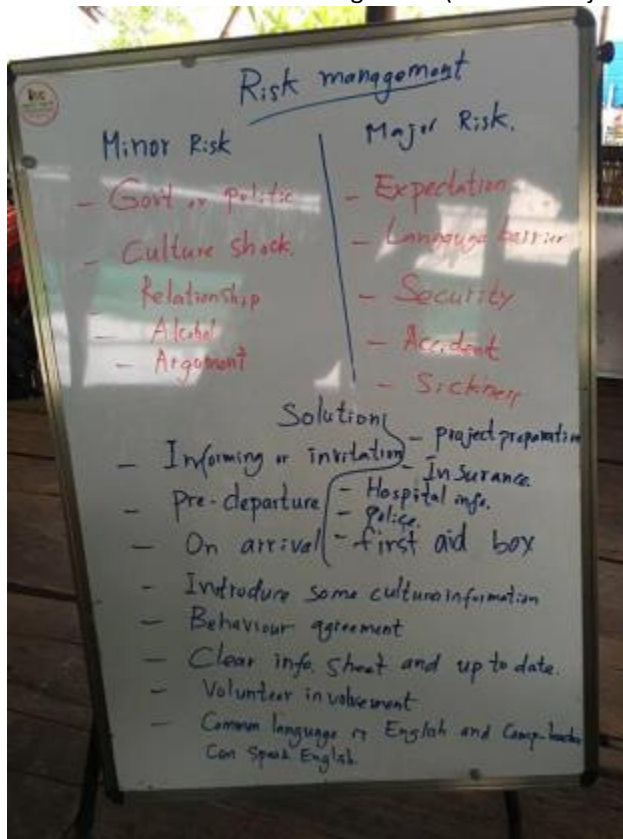 Risk management
Minor Risk
- Govt or politic
- Culture shock.
Relationship
- Alcohol
- Argument
Major Risk.
- Expectation
- Langauge barrier
- Security
- Accident
- Sickness
Solution
- Informing or invitation
- Pre-departure
- On arrival
- project preparation
- Insurance.
- Hospital info.
- Police.
- first aid box
- Introdure some culture information
- Behaviour agreement
- Clear info. sheet and up to date.
- Volunteer involvement
- Common language is English and Camp-leader
Can speak English.